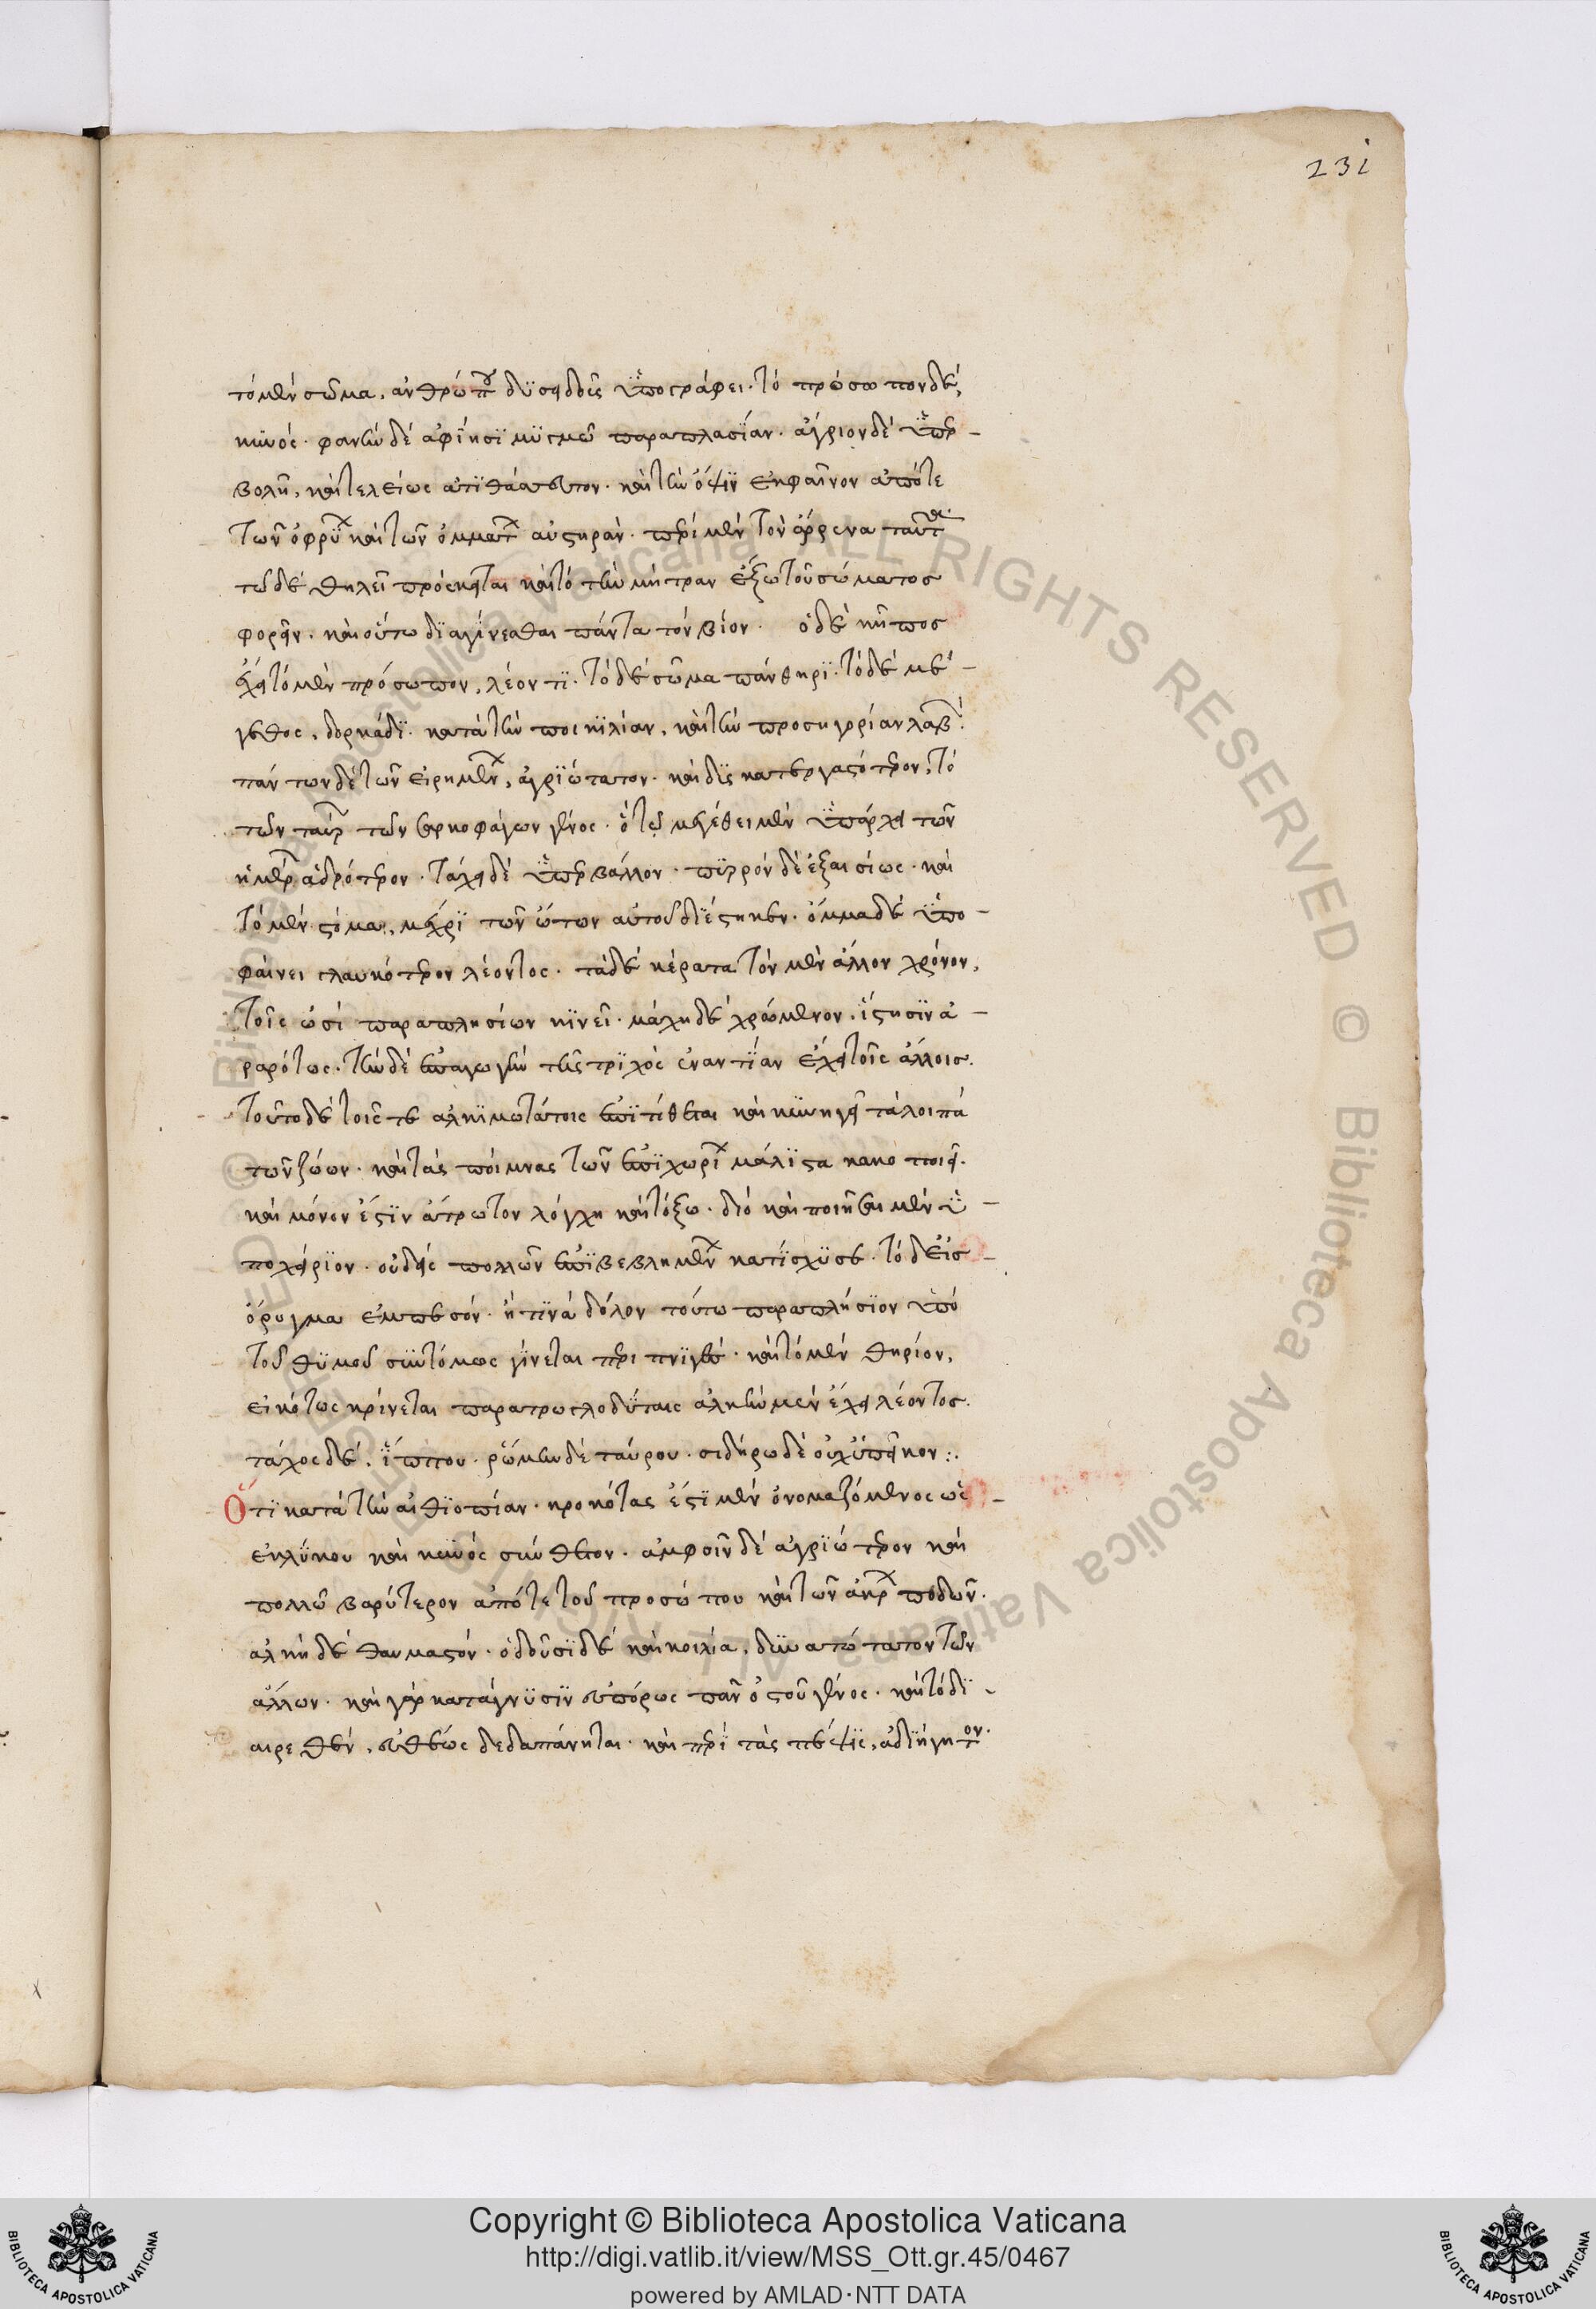 231
τὸ μὲν σῶμα, ἀνθρώπου δυσειδοῦς ὑπογράφει. τὸ πρόσωπον δέ,
κυνός. φωνὴν δὲ ἀφίησι μυγμῶ παραπλασίαν. ἄγριον δὲ ὑπερ-
βολῆ, καὶ τελείως ἀτιθάσευτον. καὶ τὴν ὄψιν ἐκφαῖνον ἀπό τε
τῶν ὀφρύων καὶ τῶν ὀμμάτων αὐστηράν. περὶ μὲν τὸν ἄρρενα ταῦτα.
τῶ δὲ θηλεῖ πρόσκειται καὶ τὸ τὴν μήτραν ἔξω τοῦ σώματος
φορεῖν. καὶ οὕτω διαγίνεσθαι πάντα τὸν βίον. ὁ δὲ κῆπος
ἔχει τὸ μὲν πρόσωπον, λέοντι. τὸ δὲ σῶμα πάνθηρι. τὸ δὲ μέ-
γεθος, δορκάδι. κατὰ τὴν ποικιλίαν, καὶ τὴν προσηγορίαν λαβ
πάντων δὲ τῶν εἰρημένων, ἀγριώτατον. καὶ δὶς κατεργαστότερον, τὸ
τῶν ταύρων τῶν σαρκοφάγων γένος. ὅ τῶ μεγέθει μὲν ὑπάρχει τῶν
ἡμέρων ἁδρότερον. τάχει δὲ ὑπερβάλλον. πυρρὸν δὲ ἐξαισίως. καὶ
τὸ μὲν στόμα, μέχρι τῶν ὤτων αὐτοῦ διέστηκεν. ὄμμα δὲ ὑπο-
φαίνει γλαυκότερον λέοντος. τὰ δὲ κέρατα τὸν μὲν ἄλλον χρόνον,
τοῖς ὠσὶ παραπλησίων κινεῖ. μάχη δὲ χρώμενον, ἵστησιν ἀ-
ραρότως. τὴν δὲ ἐπαγωγὴν τῆς τριχὸς ἐναντίαν ἔχει τοῖς ἄλλοις.
τοῦτο δὲ τοῖς τε ἀλκιμωτάτοις ἐπιτίθεται καὶ κυνηγεῖ τὰ λοιπὰ
τῶν ζώων. καὶ τὰς ποίμνας τῶν ἐπιχωρίων μάλιστα κακοποιεῖ.
καὶ μόνον ἐστὶν ἄτρωτον λόγχη καὶ τόξω. διὸ καὶ ποιῆσαι μὲν ὑ-
ποχείριον. οὐδεὶς πολλῶν ἐπιβεβλημένων κατίσχυσε. τὸ δ εἰς
ὄρυγμα ἐμπεσόν. ἤ τινα δόλον τούτω παραπλήσιον ὑπὸ
τοῦ θυμοῦ συντόμως γίνεται περιπνιγές. καὶ τὸ μὲν θηρίον,
εἰκότως κρίνεται παρα τρωγλοδύταις ἀλκὴν μὲν ἔχει λέοντος.
τάχος δέ, ἵππου. ῥώμην δὲ ταύρου. σιδήρω δὲ οὐχ ὑπεῖκον:.
Ὅτι κατὰ τὴν αἰθιοπίαν. κροκότας ἐστὶ μὲν ὀνομαζόμενος ὡς -
ἐκ λύκου καὶ κυνὸς σύνθετον. ἀμφοῖν δὲ ἀγριώτερον καὶ
πολλῶ βαρύτερον ἀπό τε τοῦ προσώπου καὶ τῶν ἄκρων ποδῶν.
ἀλκὴ δὲ θαυμαστόν. ὀδοῦσι δὲ καὶ κοιλία, δυνατώτατον τῶν
ἄλλων. καὶ γὰρ κατάγνυσιν εὐπόρως πᾶν ὀστοῦ γένος. καὶ τὸ δι-
αιρεθέν, εὐθέως δεδαπάνηται. καὶ περὶ τὰς πέψις, ἀδιήγητον.
Copyright © Biblioteca Apostolica Vaticana
http://digi.vatlib.it/view/MSS_Ott.gr.45/0467
powered by AMLAD·NTT DATA